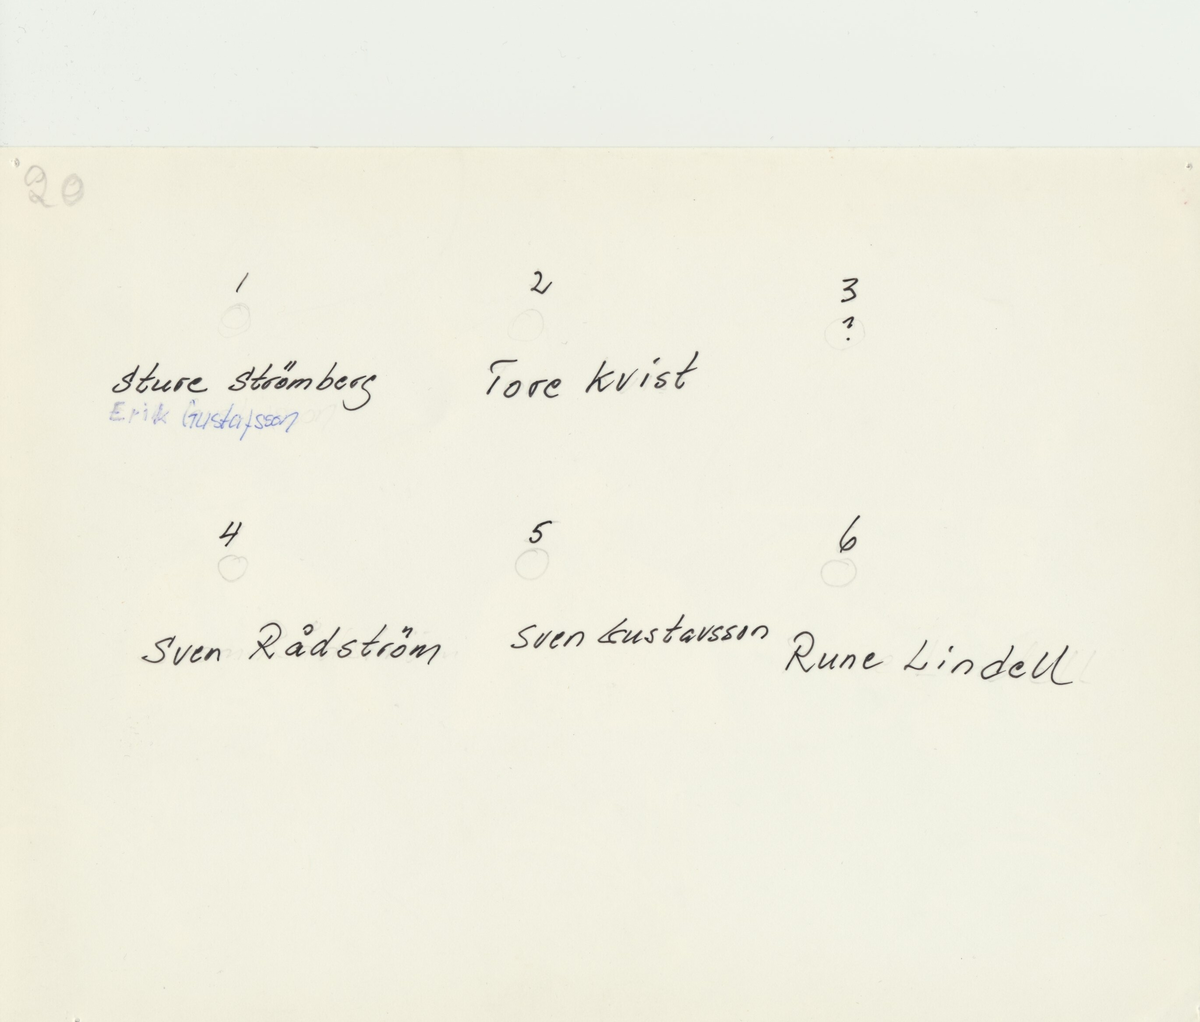 20
1 2 3
?
Sture Strömberg Tore Kvist
Erik Gustafsson
4 5 6
Sven Rådström Sven Gustavsson Rune Lindell